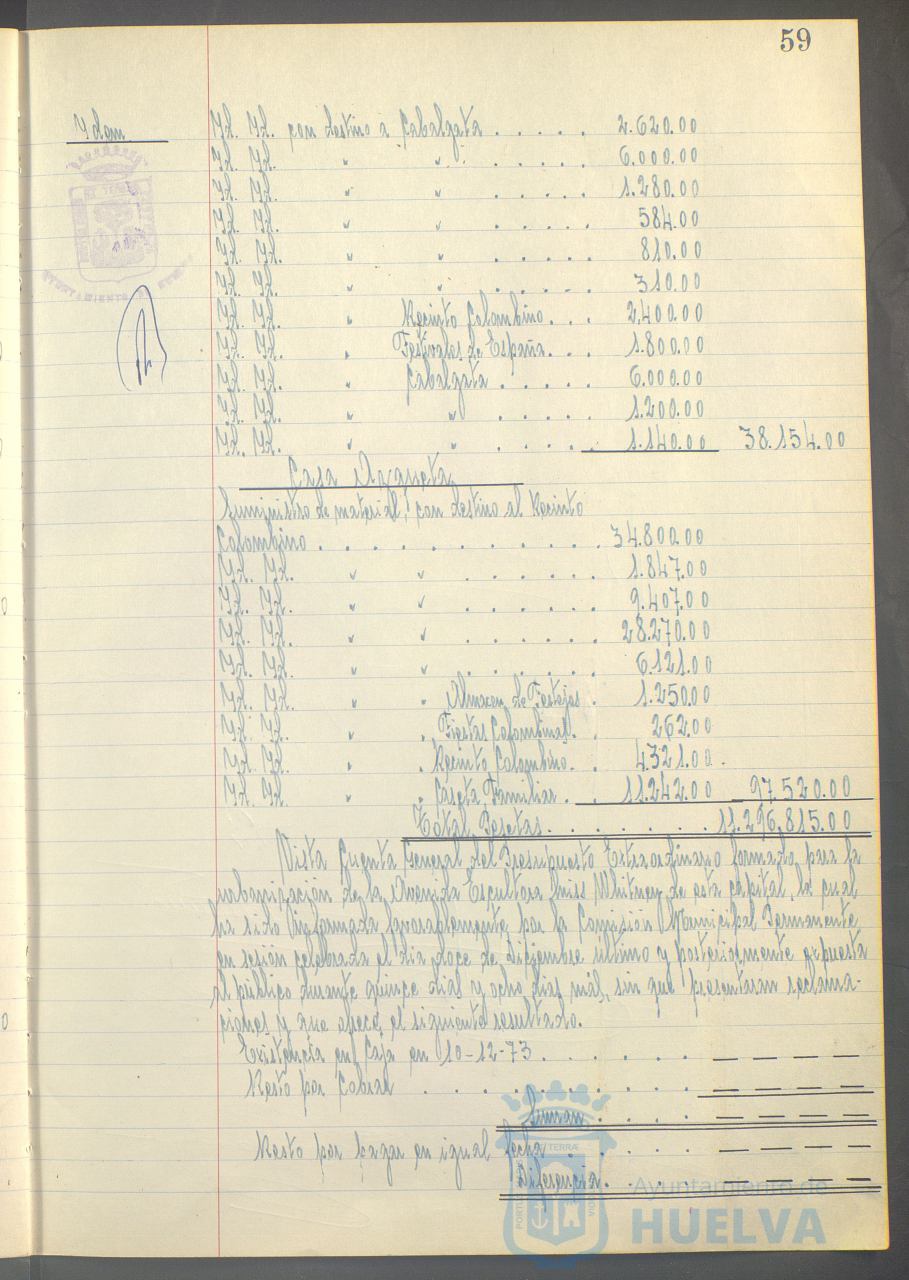 59
Idem
Id. Id. con destino a Cabalgata . . . . . 2.620.00
Id. Id. " " . . . . . 6.000.00
Id. Id. " " . . . . . 1.280.00
Id. Id. " " . . . . . 584.00
Id. Id. " " . . . . . 810.00
Id. Id. " " . . . . . 310.00
Id. Id. " Recinto Colombino. . . 2.400.00
Id. Id. " Festivales de España. . . 1.800.00
Id. Id. " Cabalgata . . . . . 6.000.00
Id. Id. " " . . . . . 1.200.00
Id. Id. " " . . . . . 1.140.00 38.154.00
Casa
Suministro de material, con destino al Recinto
Colombino . . . . . . . . . . 34.800.00
Id. Id. " " . . . . . 1.847.00
Id. Id. " " . . . . . 9.407.00
Id. Id. " " . . . . . 28.270.00
Id. Id. " " . . . . . 6.121.00
Id. Id. " " Almacen de Festejos . 1.250.00
Id. Id. " " Fiestas Colombinas . . 262.00
Id. Id. " " Recinto Colombino. . 4.321.00
Id. Id. " " Caseta Familiar . . 11.242.00 97.520.00
Total Pesetas. . . . . . . 11.296.815.00
Vista Cuenta General del Presupuesto Extraordinario formado para la
urbanización de la Avenida Escultora Miss Whitney de esta capital, la cual
ha sido informada favorablemente por la Comisión Municipal Permanente
en sesión celebrada el dia doce de diciembre último y posteriormente expuesta
al público durante quince dias y ocho dias más, sin que presentaran reclama-
ciones y que ofrece el siguiente resultado.
Existencia en Caja en 10-12-73. . . . . — — — —
Resto por Cobrar . . . . . . . . . — — — —
Suman . . . . — — — —
Resto por pagar en igual fecha . . . . — — — —
Diferencia. . . . — — — —
Ayuntamiento de
HUELVA